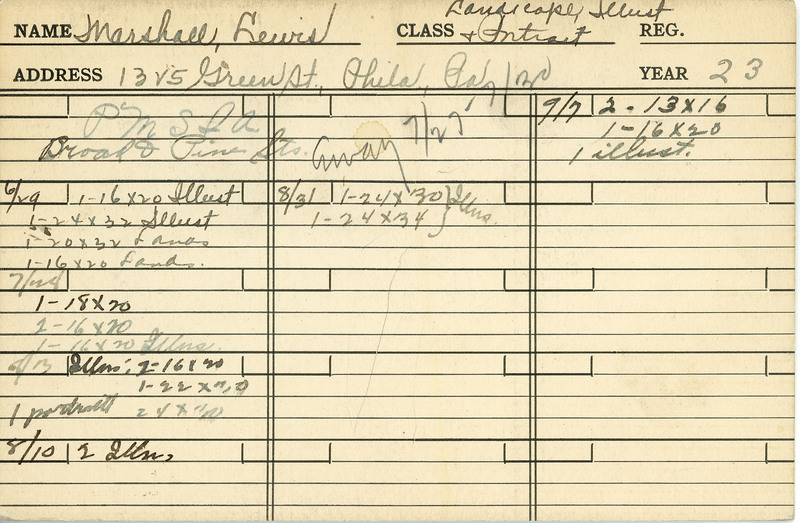 Landscape, Illust
NAME Marshall, Lewis CLASS & Portrait REG.
ADDRESS 1325 Green St., Phila, Pa. 7/30 YEAR 23
P M S I A 7/27
Broad & Pine Sts. Away
9/7 2-13x16
1-16x20
1 illust.
6/29 1-16x20 Illust
1-24x32 Illust
1-20x32 Lands
1-16x20 Lands.
1-18x20
2-16x20
1-16x20 Illus.
Illus, 2-16x20
1-22x30
1 portrait 24x30
8/10 2 Illn,
8/31 1-24x30 } Illns.
1-24x34